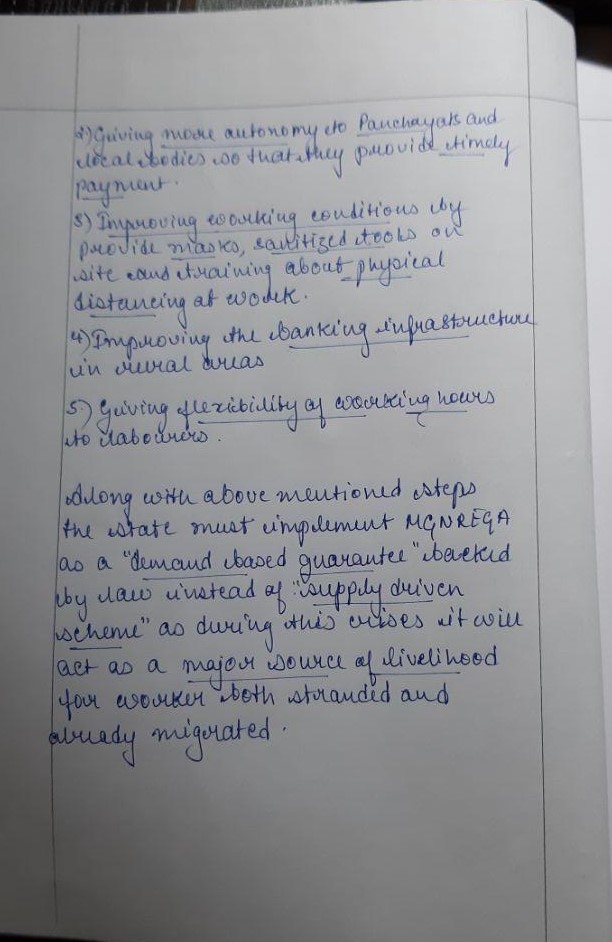 2) Giving more autonomy to Panchayats and
local bodies so that they provide timely
payment.
3) Improving working conditions by
provide masks, sanitized tools on
site and training about physical
distancing at work.
4) Improving the banking infrastructure
in rural areas
5.) Giving flexibility of working hours
to labourers.
Along with above mentioned steps
the state must implement MGNREGA
as a "demand based guarantee" backed
by law instead of "supply driven
scheme" as during this crises it will
act as a major source of livelihood
for worker both stranded and
already migrated.